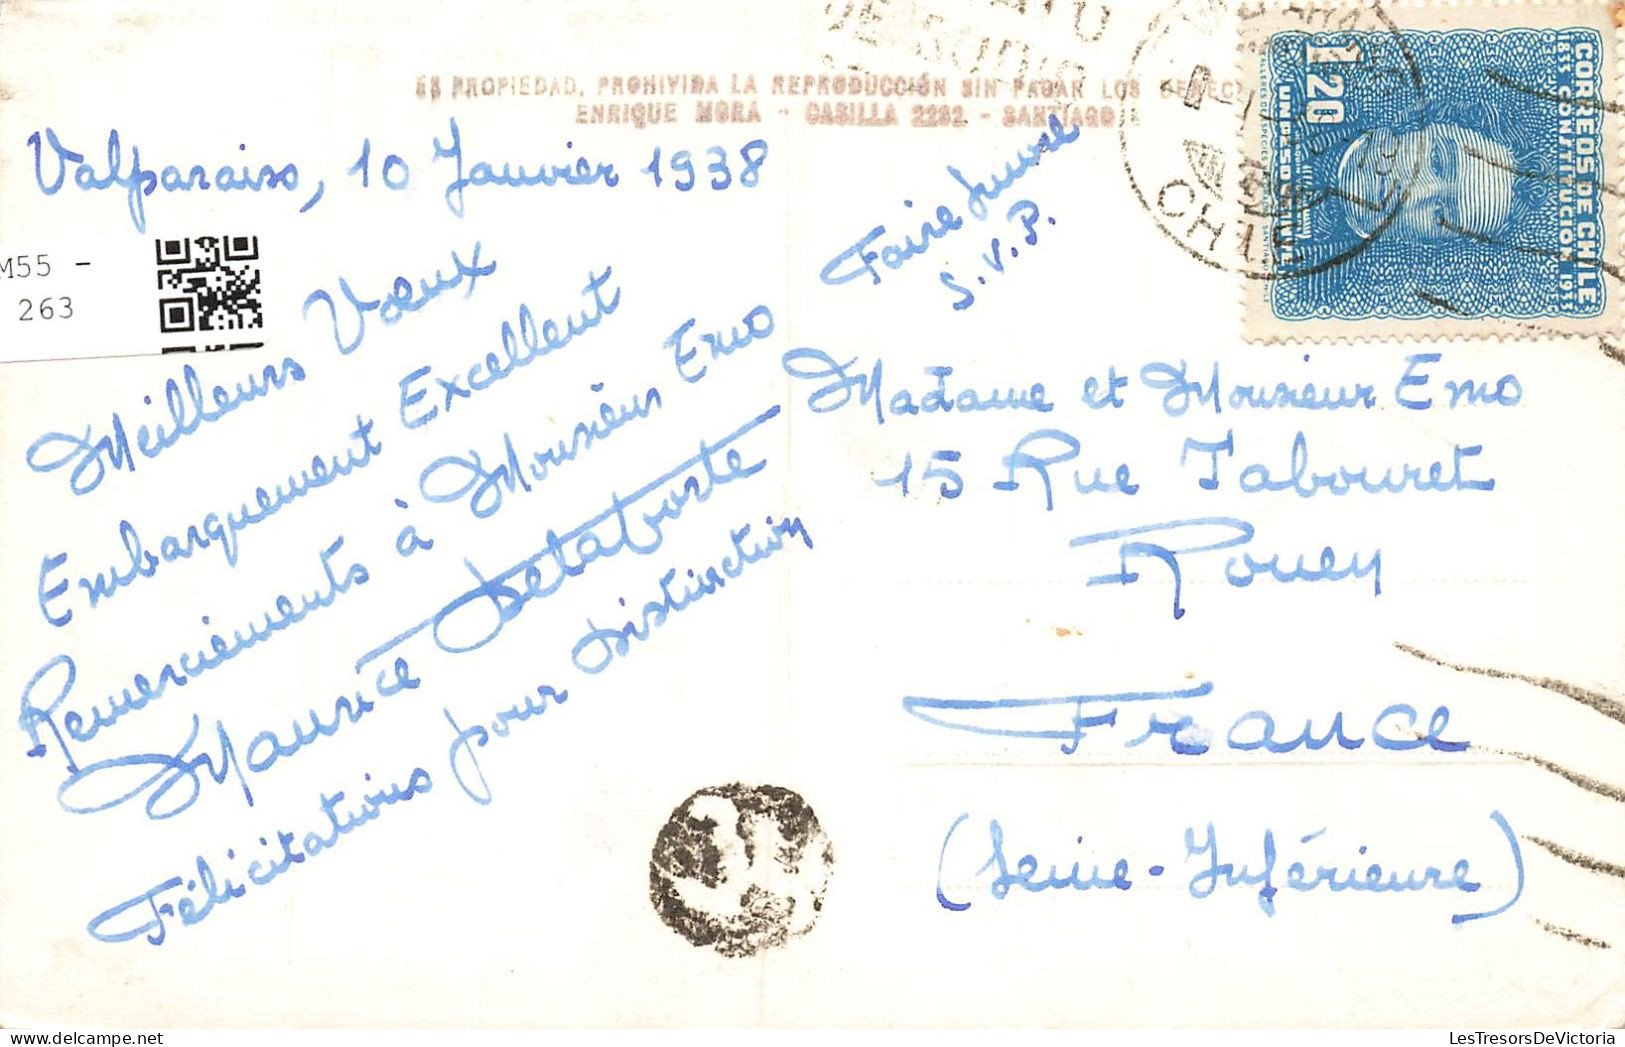 ES PROPIEDAD, PROHIVIDA LA REPRODUCCIÓN SIN PAGAR LOS
ENRIQUE MORA - CASILLA 2232 - SANTIAGO
Valparaiso, 10 Janvier 1938
Meilleurs Vœux
Embarquement Excellent
Remerciements à Monsieur Emo
Maurice Delaborte
Félicitations pour Distinction
Faire suivre
S.V.P.
Madame et Monsieur Emo
15 Rue Tabouret
Rouen
France
(Seine-Inférieure)
CORREOS DE CHILE
1833 CONSTITUCION 1933
1.20
UN PESO
CHILE
M55 -
263
LesTresorsDeVictoria